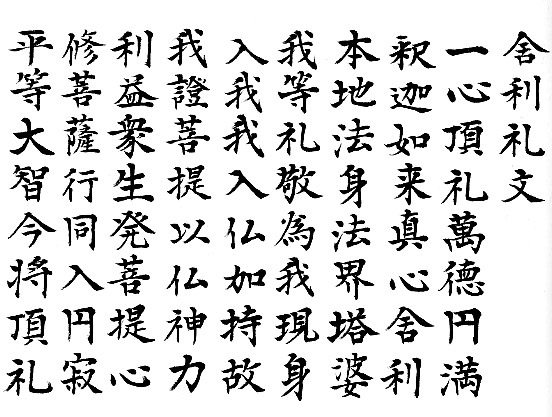 舍利礼文
一心頂礼萬德円満
釈迦如来真心舍利
本地法身法界塔婆
我等礼敬為我現身
入我我入仏加持故
我證菩提以仏神力
利益衆生発菩提心
修菩薩行同入円寂
平等大智今将頂礼